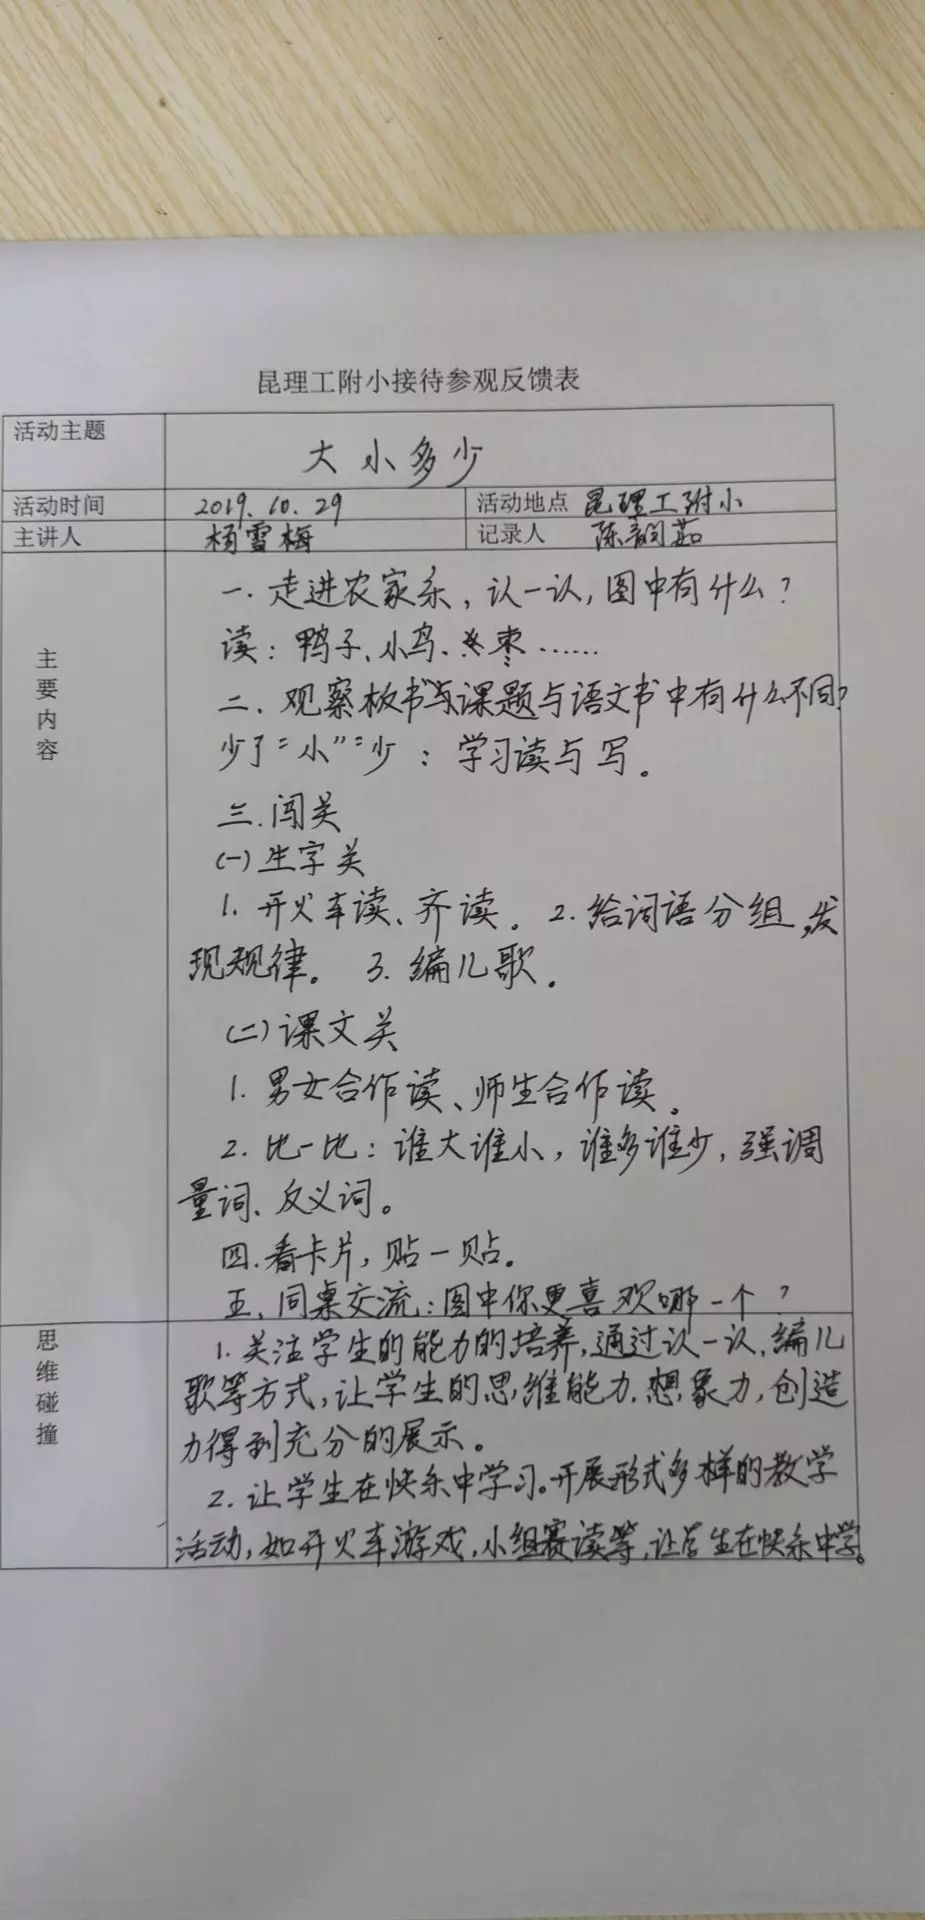 昆理工附小接待参观反馈表
活动主题 大小多少
活动时间 2019.10.29 活动地点 昆理工附小
主讲人 杨雪梅 记录人 陈 茹
主要内容
一.走进农家乐,认一认,图中有什么?
读:鸭子、小鸟、枣……
二.观察板书与课题与语文书中有什么不同?
少了"小""少:学习读与写。
三.闯关
(一)生字关
1.开火车读、齐读。2.给词语分组,发
现规律。 3.编儿歌。
(二)课文关
1.男女合作读、师生合作读。
2.比一比:谁大谁小,谁多谁少,强调
量词、反义词。
四.看卡片,贴一贴。
五.同桌交流:图中你更喜欢哪一个?
思维碰撞
1.关注学生的能力的培养,通过认一认,编儿
歌等方式,让学生的思维能力,想象力,创造
力得到充分的展示。
2.让学生在快乐中学习。开展形式多样的教学
活动,如开火车游戏,小组赛读等,让学生在快乐中学。